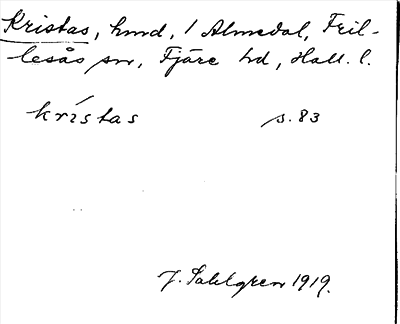 Kristas, hmd, 1 Almedal, Fril-
lesås sn, Fjäre hd, Hall. l.
krístas s. 83
J. Sahlgren 1919.